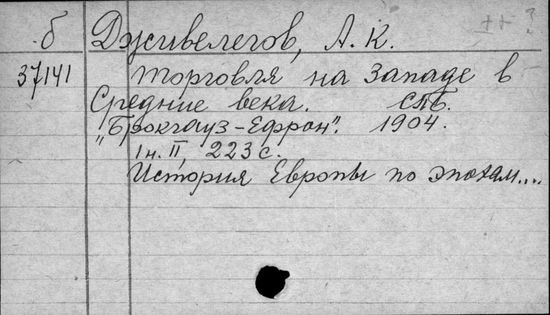 б Дживелегов, А. К.
37141 Торговля на Западе в
Средние века. СПб.
"Брокгауз-Ефрон". 1904.
1 н. II, 223 с.
История Европы по эпохам....